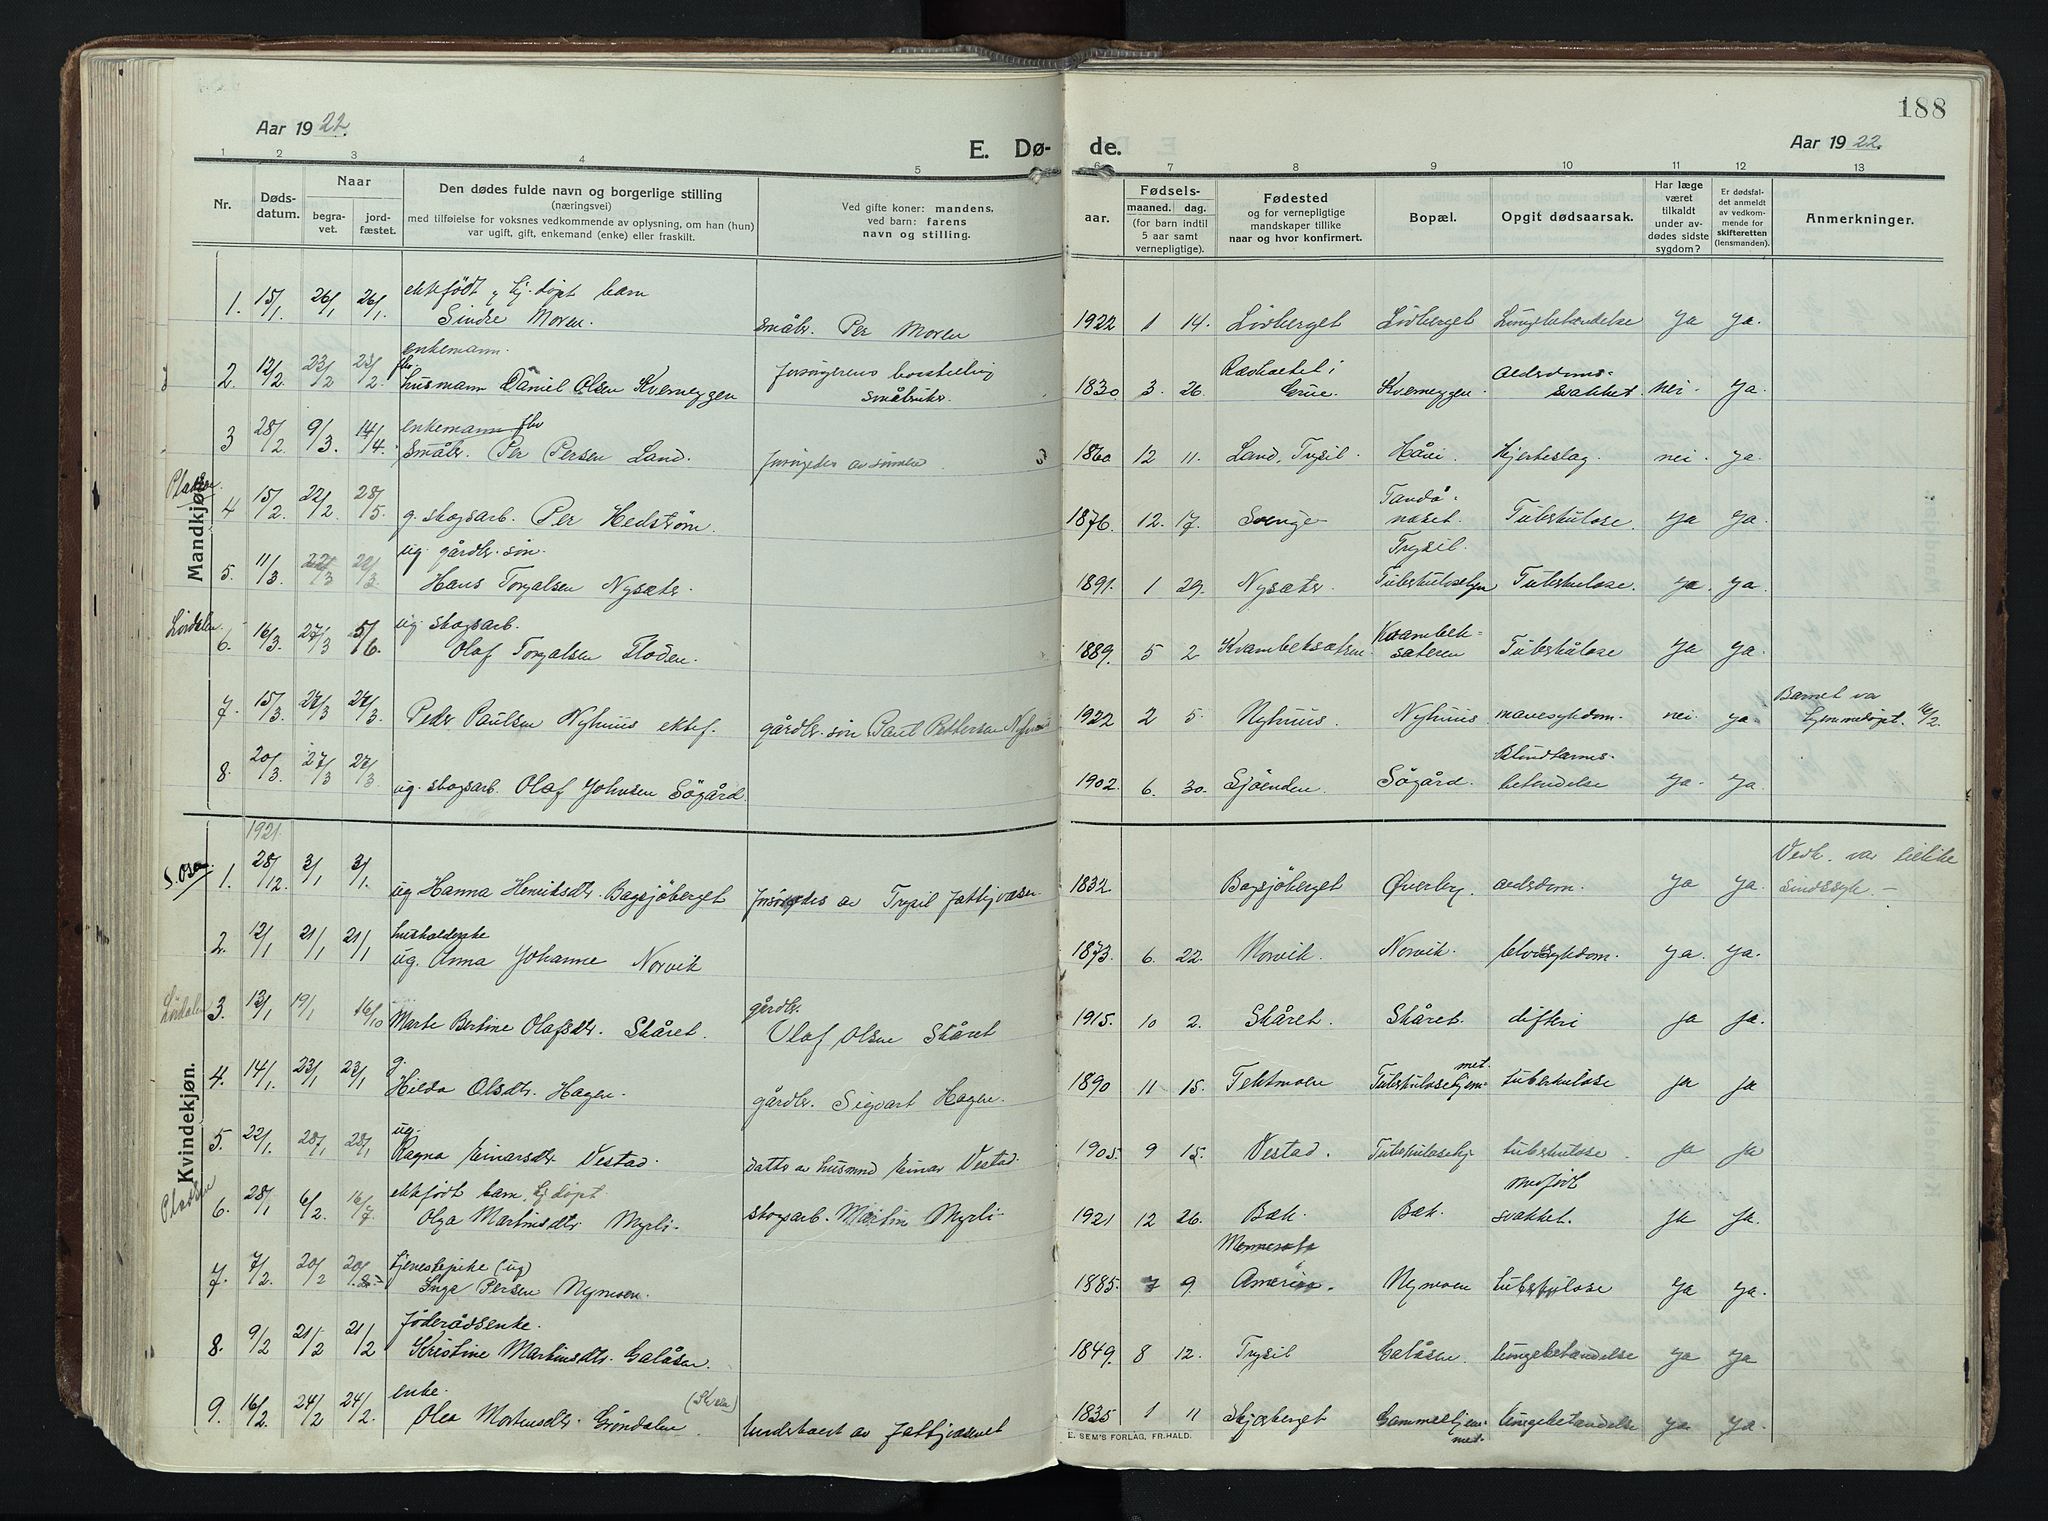 188
Aar 1922.
E. Dø-
de.
Aar 1922.
1 2 3 4 5 6 7 8 9 10 11 12 13
Nr.
Døds-
datum.
Naar
begra-
vet.
jord-
fæstet.
Den dødes fulde navn og borgerlige stilling
(næringsvei)
med tilføielse for voksnes vedkommende av oplysning, om han (hun)
var ugift, gift, enkemand (enke) eller fraskilt.
Ved gifte koner: mandens,
ved barn: farens
navn og stilling.
aar.
Fødsels-
maaned. dag.
(for barn indtil
5 aar samt
vernepligtige).
Fødested
og for vernepligtige
mandskaper tillike
naar og hvor konfirmert.
Bopæl.
Opgit dødsaarsak.
Har læge
været
tilkaldt
under av-
dødes sidste
sygdom?
Er dødsfal-
det anmeldt
av vedkom-
mende for
skifteretten
(lensmanden).
Anmerkninger.
Mandkjøn.
ektefödt, hj. döpt barn
1. 15/1 26/1 26/1. Sindre Moren. Småbr. Per Moren 1922 1 14. Lövberget Lövberget Lungebetændelse ja ja.
enkemann.
2. 12/2. 23/2 23/2. husmann Daniel Olsen Kverneggen forsörgerens 1830 3. 26. Grue. Kverneggen. Alderdoms-
svakhet. nei. ja.
enkemann fhv
3 28/2. 9/3. 14/4. Småbr. Per Persen Land. forsörgedes av sönnen 1860 12 11. Land, Trysil. Håvi. Hjerteslag. nei. ja.
Pladsen.
4 15/2. 22/2 28/5. g. skogsarb. Per Hedström. 1876. 12. 17. Svenge Tandå-
næset. Tuberkulose. ja ja.
ug. gårdbr. sön.
5. 11/3. 22/3 22/3. Hans Torgalsen Nysæter. 1891. 1 29. Nysæter. Trysil.
Tuberkulosehjem Tuberkulose. ja. ja.
Lördalen.
ug. skogsarb.
6. 16/3. 27/3 5/6. Olaf Torgalsen Floden. 1889. 5 2 Kvambeksætren Kvambek-
sæteren Tuberkulose ja ja.
7. 15/3. 27/3 27/3. Peder Paulsen Nyhuus ektef. gårdbr. sön Paul Pettersen Nyhuus 1922 2 5. Nyhuus. Nyhuus mavesykdom. nei. ja. Barnet var
hjemmedöpt. 16/2.
8. 20/3. 27/3 27/3. ug. skogsarb. Olaf Johnsen Sögård. 1902. 6. 30. Sjöenden. Sögård. Blindtarms-
betendelse ja. ja.
Kvindekjøn.
1921.
S. Osen
1. 28/12. 3/1 3/1. ug Hanna Henriksdtr. Bagsjöberget forsörgedes av Trysil Fattigvæsen 1832 Bagsjöberget Øverby. alderdom. ja ja. Vedk. var tillike
sindssyk. —
husholderske
2. 12/1. 21/1 21/1 ug. Anna Johanne Norvik 1873. 6. 22. Norvik. Norvik. blodsykdom. ja. ja.
Lördalen
3. 13/1 19/1 16/10 Marte Bertine Olafsdtr. Skåret. gårdbr.
Olaf Olsen Skåret 1915. 10 2. Skåret. Skåret. difteri ja ja.
g.
4. 14/1. 23/1 23/1 Hilda Olsdtr. Hagen. gårdbr. Sigvart Hagen. 1890 11 15. Tuberkulosehjem-
met. tuberkulose ja ja
ug.
5. 22/1. 28/1 28/1 Ragna Einarsdtr. Vestad. datter av husmnd Einar Vestad 1905. 9 15. Vestad. Tuberkulosehj tuberkulose. ja ja
Pladsen
ektefödt barn. hj döpt.
6. 28/1 6/2. 16/7. Olga Martinsdtr. Myrli- skogsarb. Martin Myrli- 1921 12 26. Bæk. Bæk. medfödt
svakhet. ja ja.
tjenestepike (ug)
7. 7/2. 20/2 20/ Inga Persen Nymoen. 1885. 7 9. Amerika. Nymoen tuberkulose ja ja.
föderådsenke.
8. 9/2 21/2 21/2 Kristine Martinsdtr. Galåsen. 1849. 8 12. Trysil Galåsen. lungebetændelse ja ja
enke.
9. 16/2. 24/2 24/2. Olea Mortensdtr. Gröndalen understöttet av Fattigvæsenet 1835 1 11 Skjærberget Gammelhjem-
met. lungebetændelse ja. ja.
E. SEM'S FORLAG, FR.HALD.